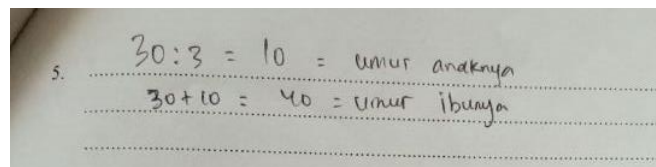 5. 30:3 = 10 = umur anaknya
30+10 = 40 = umur ibunya